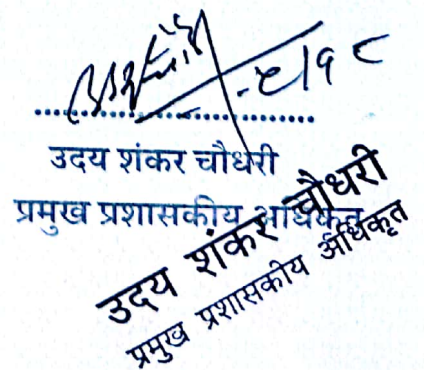 उदय शंकर चौधरी
प्रमुख प्रशासकीय अधिकृत
उदय शंकर चौधरी
प्रमुख प्रशासकीय अधिकृत